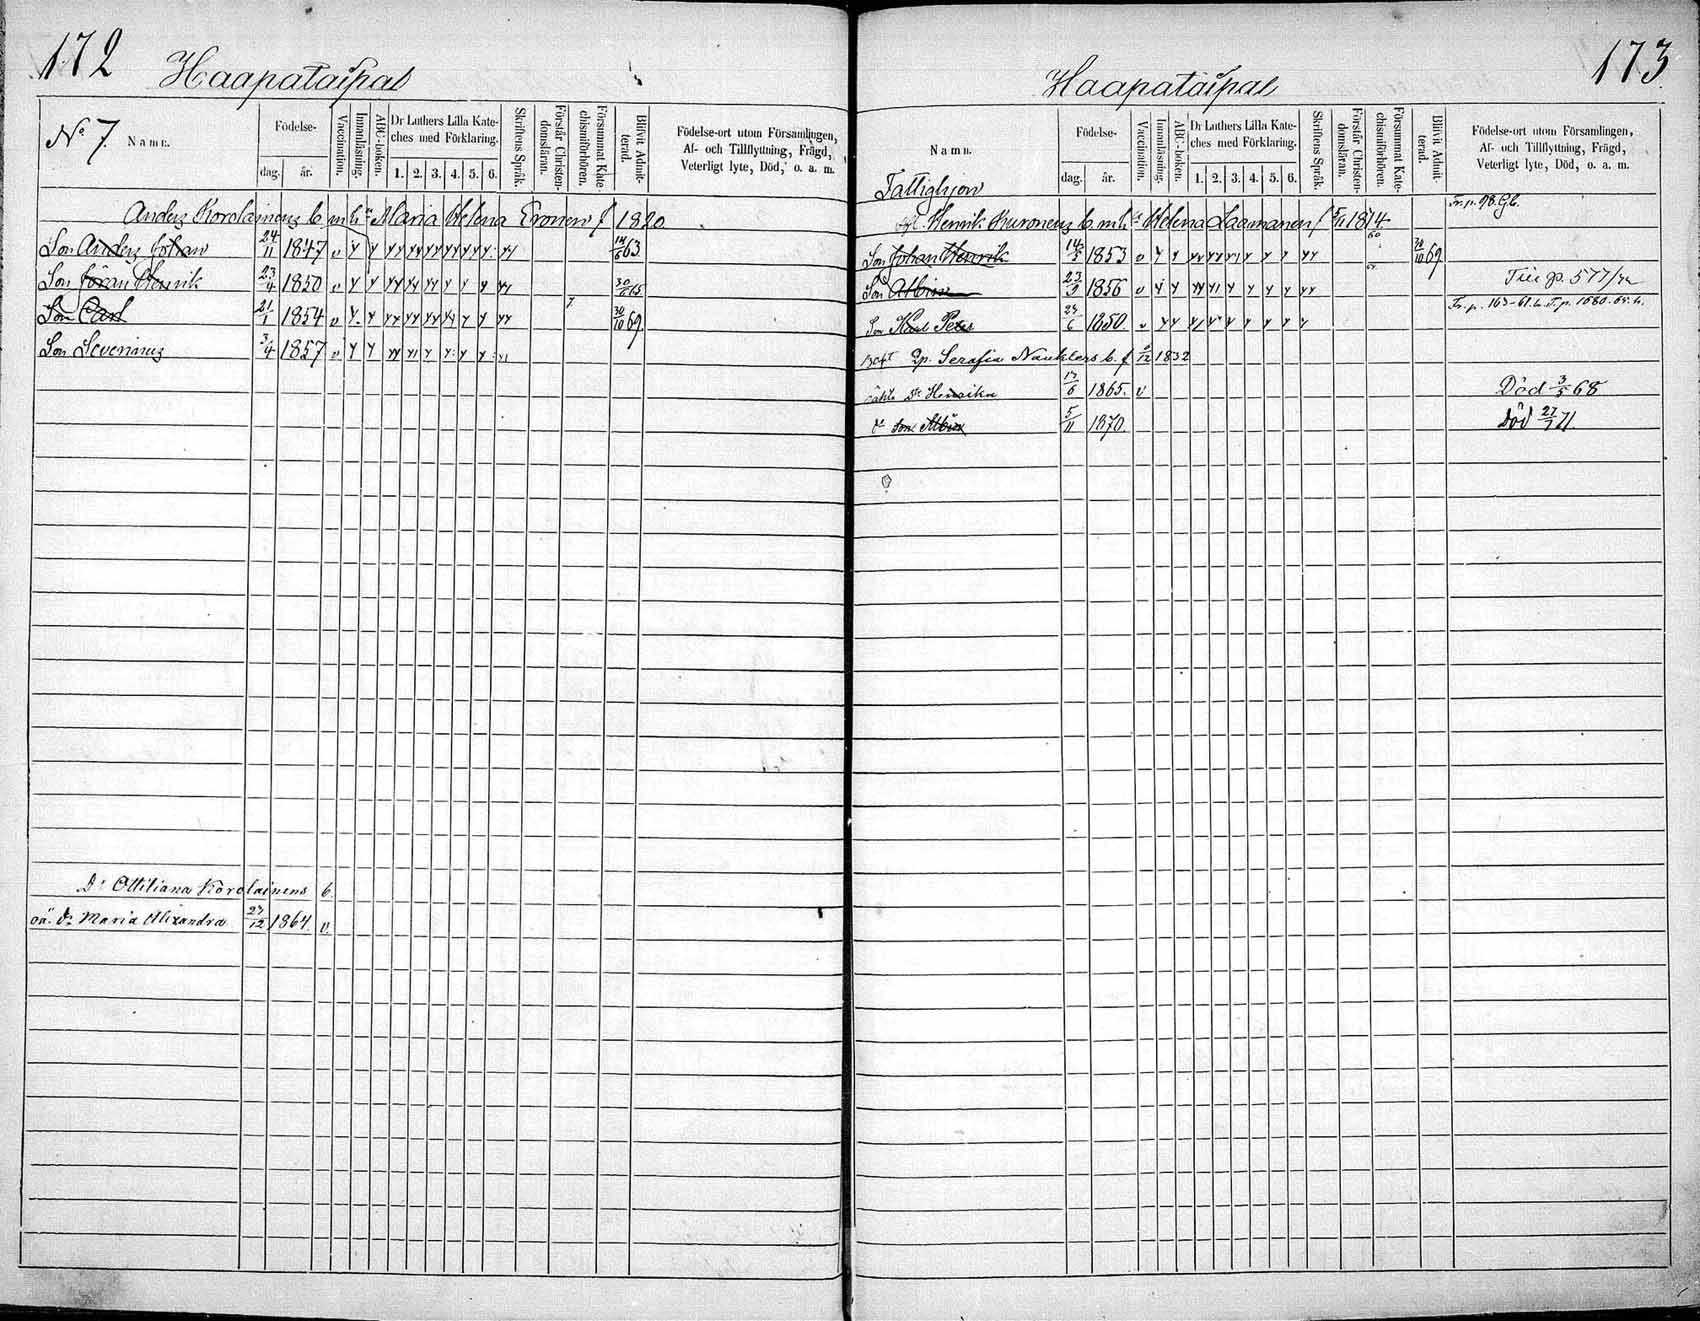 172
Haapataipal
No 7.
Namn.
Födelse-
dag.
år.
Vaccination.
Innanläsning.
ABC-boken.
Dr Luthers Lilla Kate-
ches med Förklaring.
1. 2. 3. 4. 5. 6.
Skriftens Språk.
Förstår Christen-
domsläran.
Försummat Kate-
chismiförhören.
Blifvit Admit-
terad.
Födelse-ort utom Församlingen,
Af- och Tillflyttning, Frägd,
Veterligt lyte, Död, o. a. m.
Anders Korolainens b. m. h. Maria Helena Eronen f 1820
Son Anders Johan 24/11 1847 v y y yy yy yy yy yy yy yy 14/6 63.
Son Jöran Henrik 23/4 1850 v y y yy yy yy y y y yy
Son Carl 21/1 1854 v y y yy yy yy yy y y yy 7 30/10 69
Son Severinus 3/4 1857 v y y yy y y y y y
Dr Ottiliana Korolainens b.
oä. dr Maria Alexandra 23/12 1864. v.
173.
Haapataipal
Namn.
Födelse-
dag.
år.
Vaccination.
Innanläsning.
ABC-boken.
Dr Luthers Lilla Kate-
ches med Förklaring.
1. 2. 3. 4. 5. 6.
Skriftens Språk.
Förstår Christen-
domsläran.
Försummat Kate-
chismiförhören.
Blifvit Admit-
terad.
Födelse-ort utom Församlingen,
Af- och Tillflyttning, Frägd,
Veterligt lyte, Död, o. a. m.
Fattighjon
Fr. p. 98. Gb.
Henrik Kuronens b. m. h. Helena Laamanen f 5/11 1814.
60
Son Johan Henrik 14/5 1853 v y y yy yy yy y y y yy 30/10 69
Son Albin 23/9 1856 v y y yy yy y y y y yy
Till p. 577/
Fr. p. 163-61. b. T. p. 1680-65. b.
Son Karl Peter 29/6 1850. v y y y y y y y y y
Serafia Nauklers b. f /12 1832
oäkta Dr Henrika 13/6 1865. v Död 3/5 68
do Son Albin 5/11 1870. Död 27/7 71.